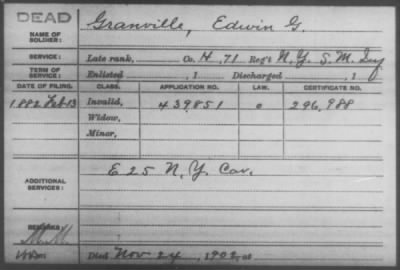 DEAD
NAME OF SOLDIER: Granville, Edwin G.
SERVICE: Late rank, Co. H, 71 Reg't N.Y. S. M. Inf
TERM OF SERVICE: Enlisted , 1 Discharged , 1
DATE OF FILING. CLASS. APPLICATION NO. LAW. CERTIFICATE NO.
1882 Feb 13 Invalid, 439.851 0 296,988
Widow,
Minor,
ADDITIONAL SERVICES: E 25 N.Y. Cav.
REMARKS:
Died Nov 24, 1902, at